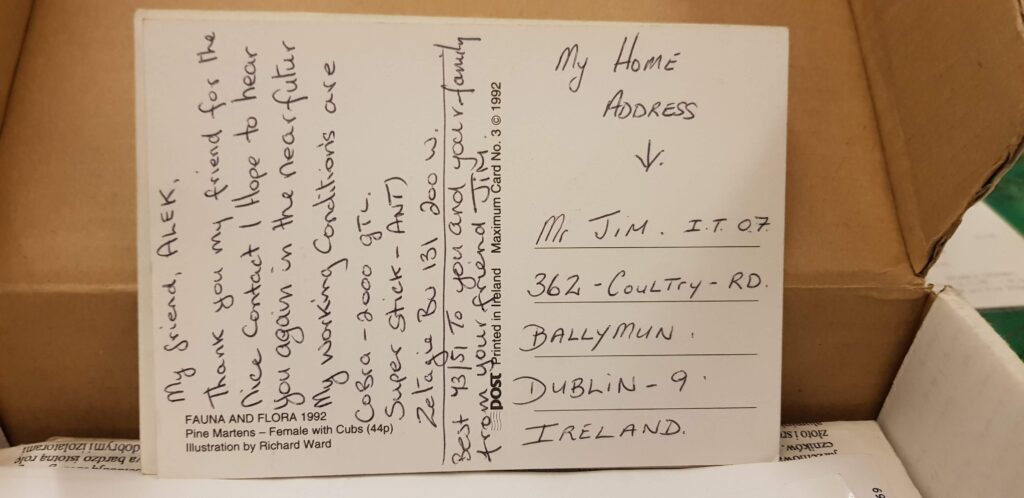 My friend, ALEK,
Thank you my friend for the
Nice Contact I Hope to hear
you again in the near futur
My working Conditions are
CoBra - 2000 gTL.
Super Stick - ANT)
Zetagie Bv 131 200 w.
Best 73/51 To you and your family
from your friend JIM.
FAUNA AND FLORA 1992
Pine Martens – Female with Cubs (44p)
Illustration by Richard Ward
post Printed in Ireland Maximum Card No. 3 © 1992
My HOME
ADDRESS
↓
Mr JiM. I.T. 07
362 - COULTry - RD.
BALLYMUN.
DUBLiN - 9.
IRELAND.
bardzo istotną rolę
dobrymi izolatorami
złoto i
czników
69